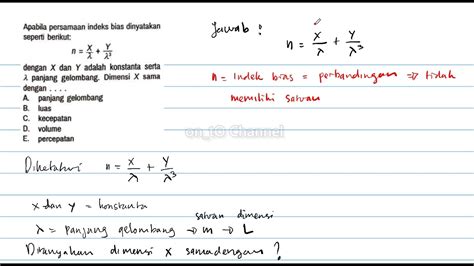 Apabila persamaan indeks bias dinyatakan
seperti berikut:
n = X/λ + Y/λ³
dengan X dan Y adalah konstanta serta
λ panjang gelombang. Dimensi X sama
dengan . . . .
A. panjang gelombang
B. luas
C. kecepatan
D. volume
E. percepatan
Jawab :
n = X/λ + Y/λ³
n = Indek bias = perbandingan ⇒ tidak
memiliki satuan
on_tO Channel
Diketahui n = X/λ + Y/λ³
X dan Y = konstanta
satuan dimensi
λ = panjang gelombang → m → L
Ditanyakan dimensi X samadengan ?